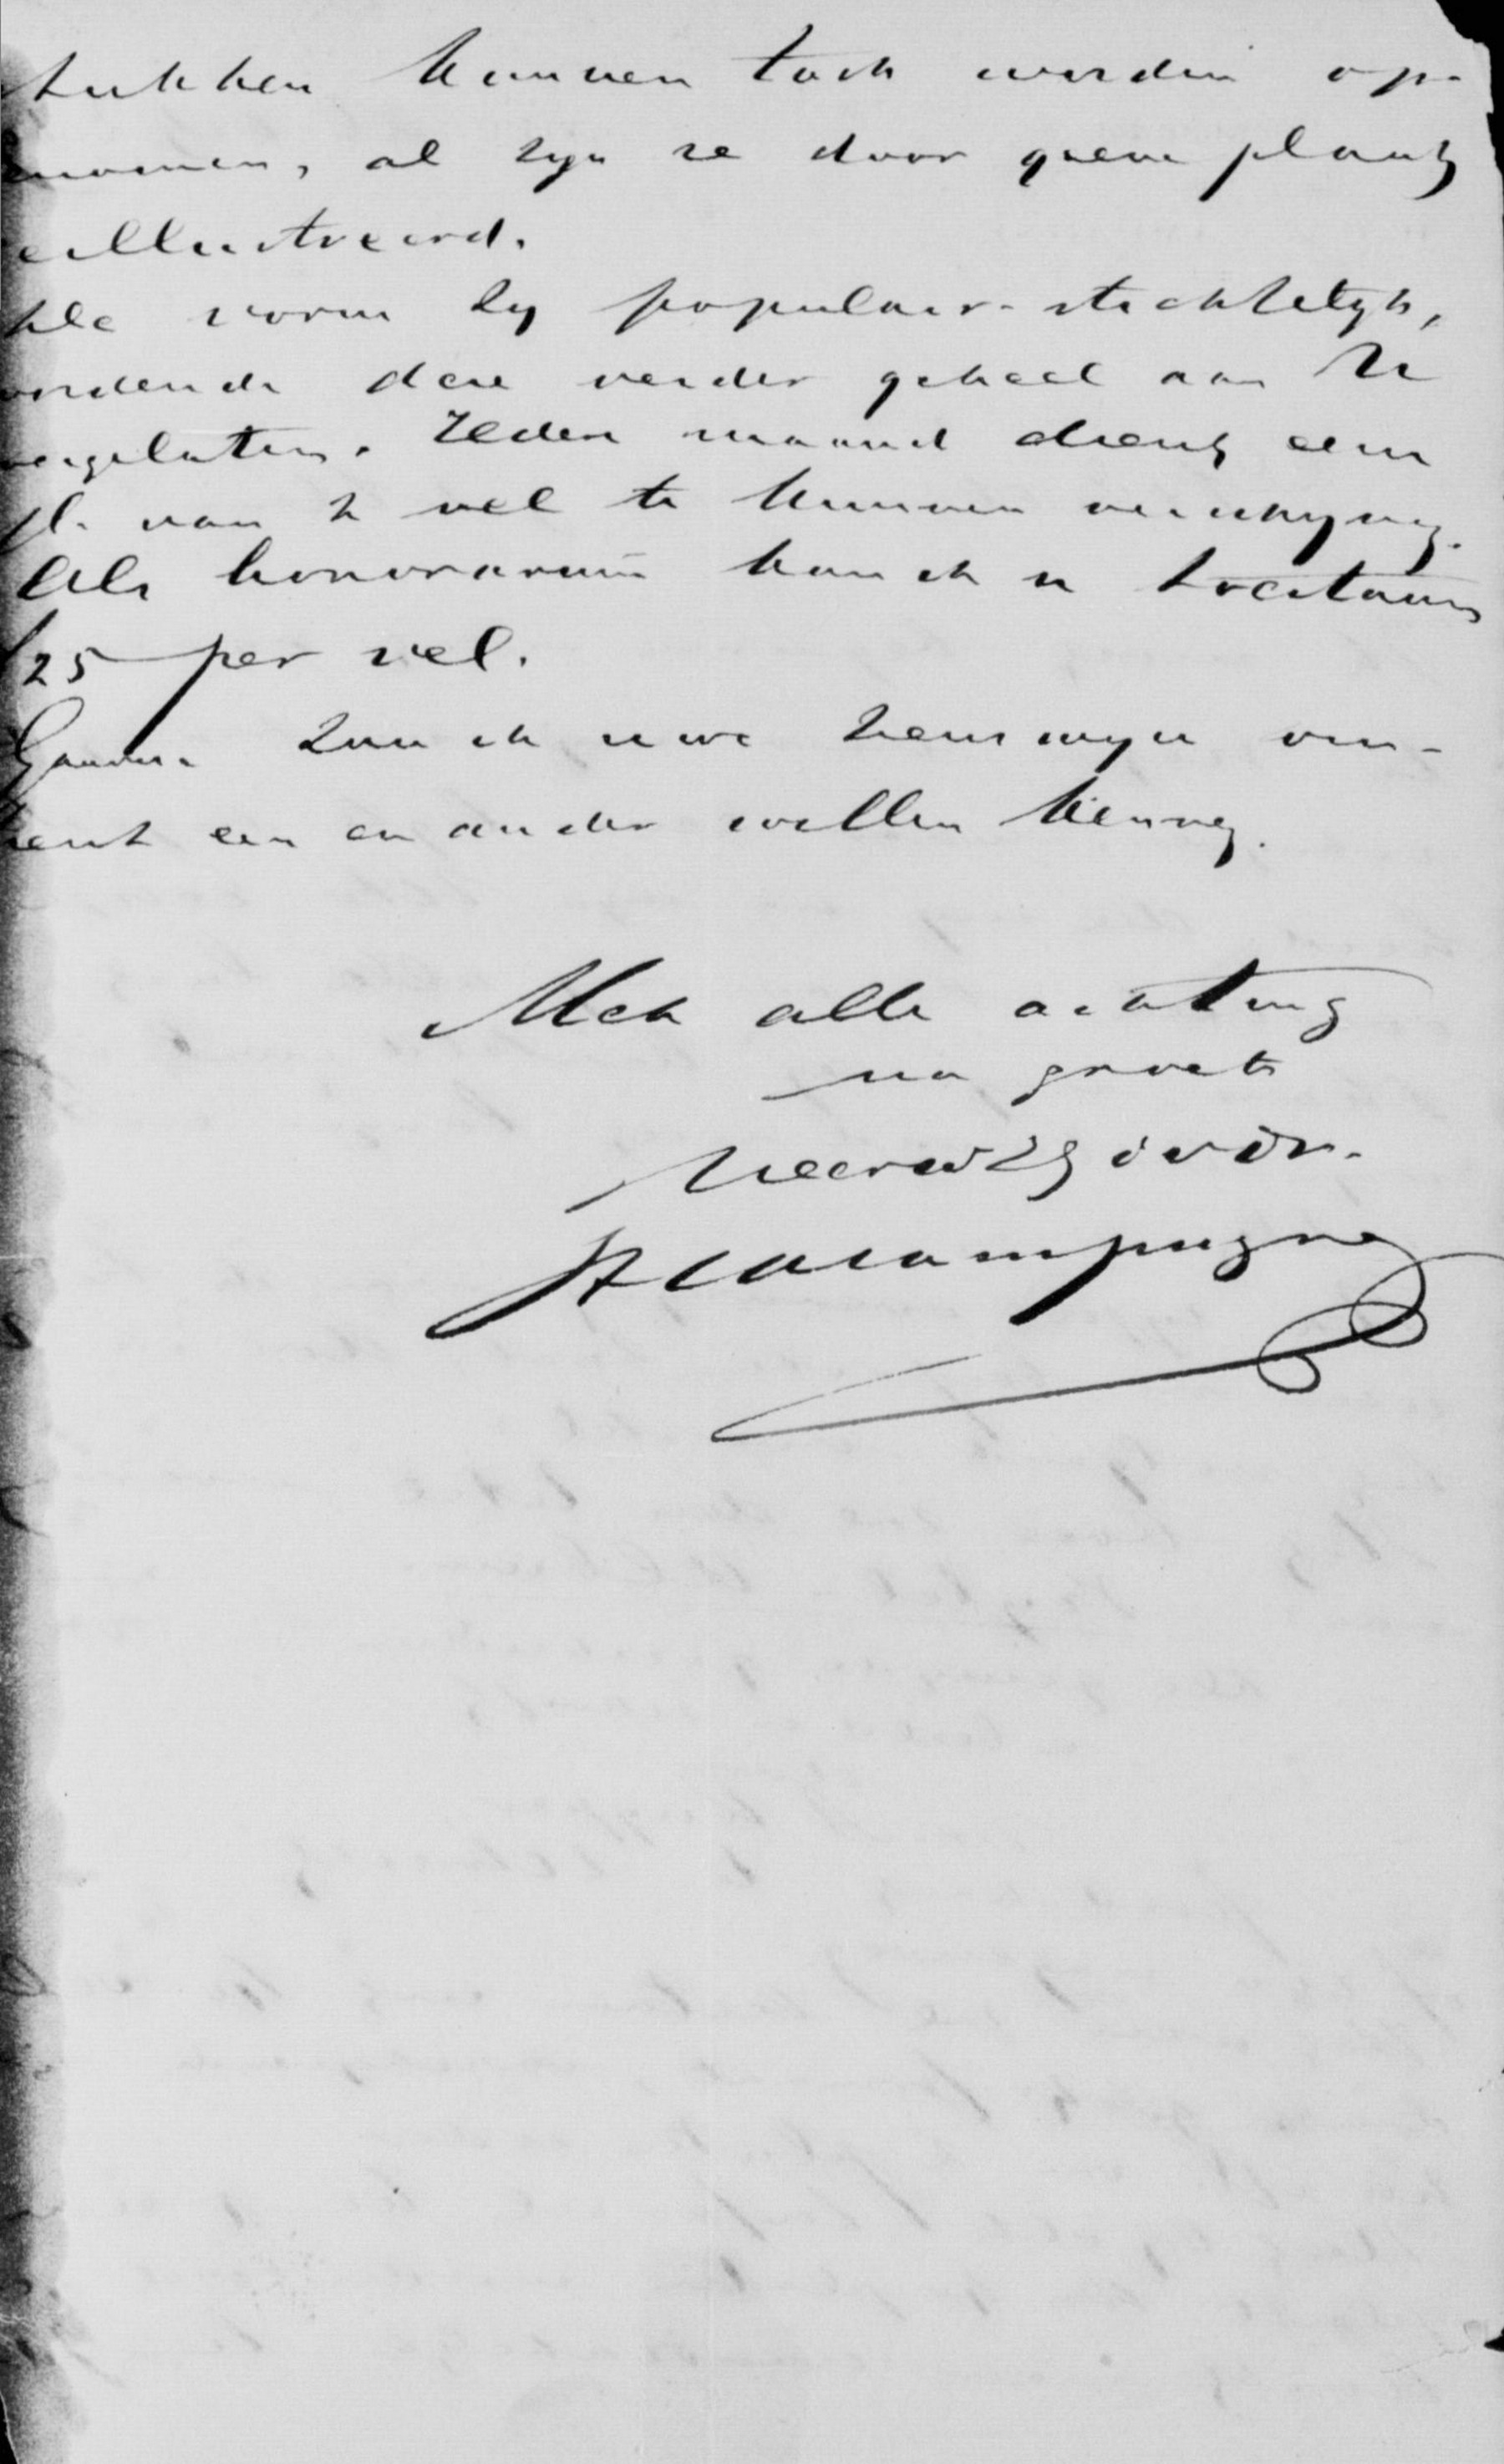 stukken kunnen toch worden op-
nomen, al zyn ze door geen plaat
eillustreerd.
vorm zy populair-stichtelyk,
wordende deze verder geheel aan U
vergelaten. Iedere maand dient een
afl. van 2 vel te kunnen verschynen.
Als honorarium kan ik u toestaan
f25 per vel.
Gaarne zou ik uwe zienswyze om-
trent een en ander willen kennen.
Met alle achting
na groete
UEerw Dv Dr.
Lacampagne